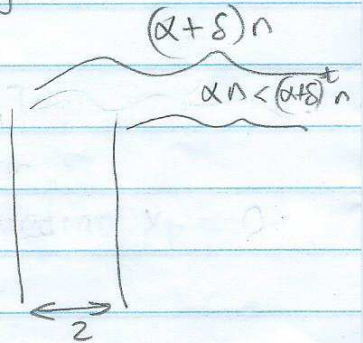 (α+δ)n
αn<(α+δ)n
2